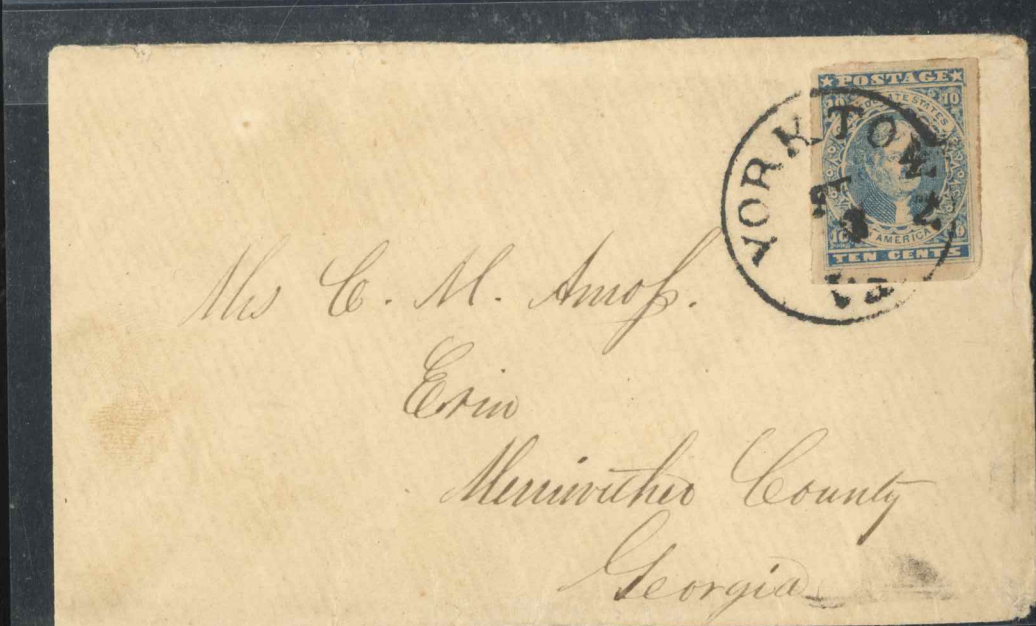 ★POSTAGE★
10 10
CONFEDERATE STATES
OF AMERICA
10 10
TEN CENTS
YORKTOWN
Va
Mrs C. M. Amoss.
Erin
Merriwether County
Georgia